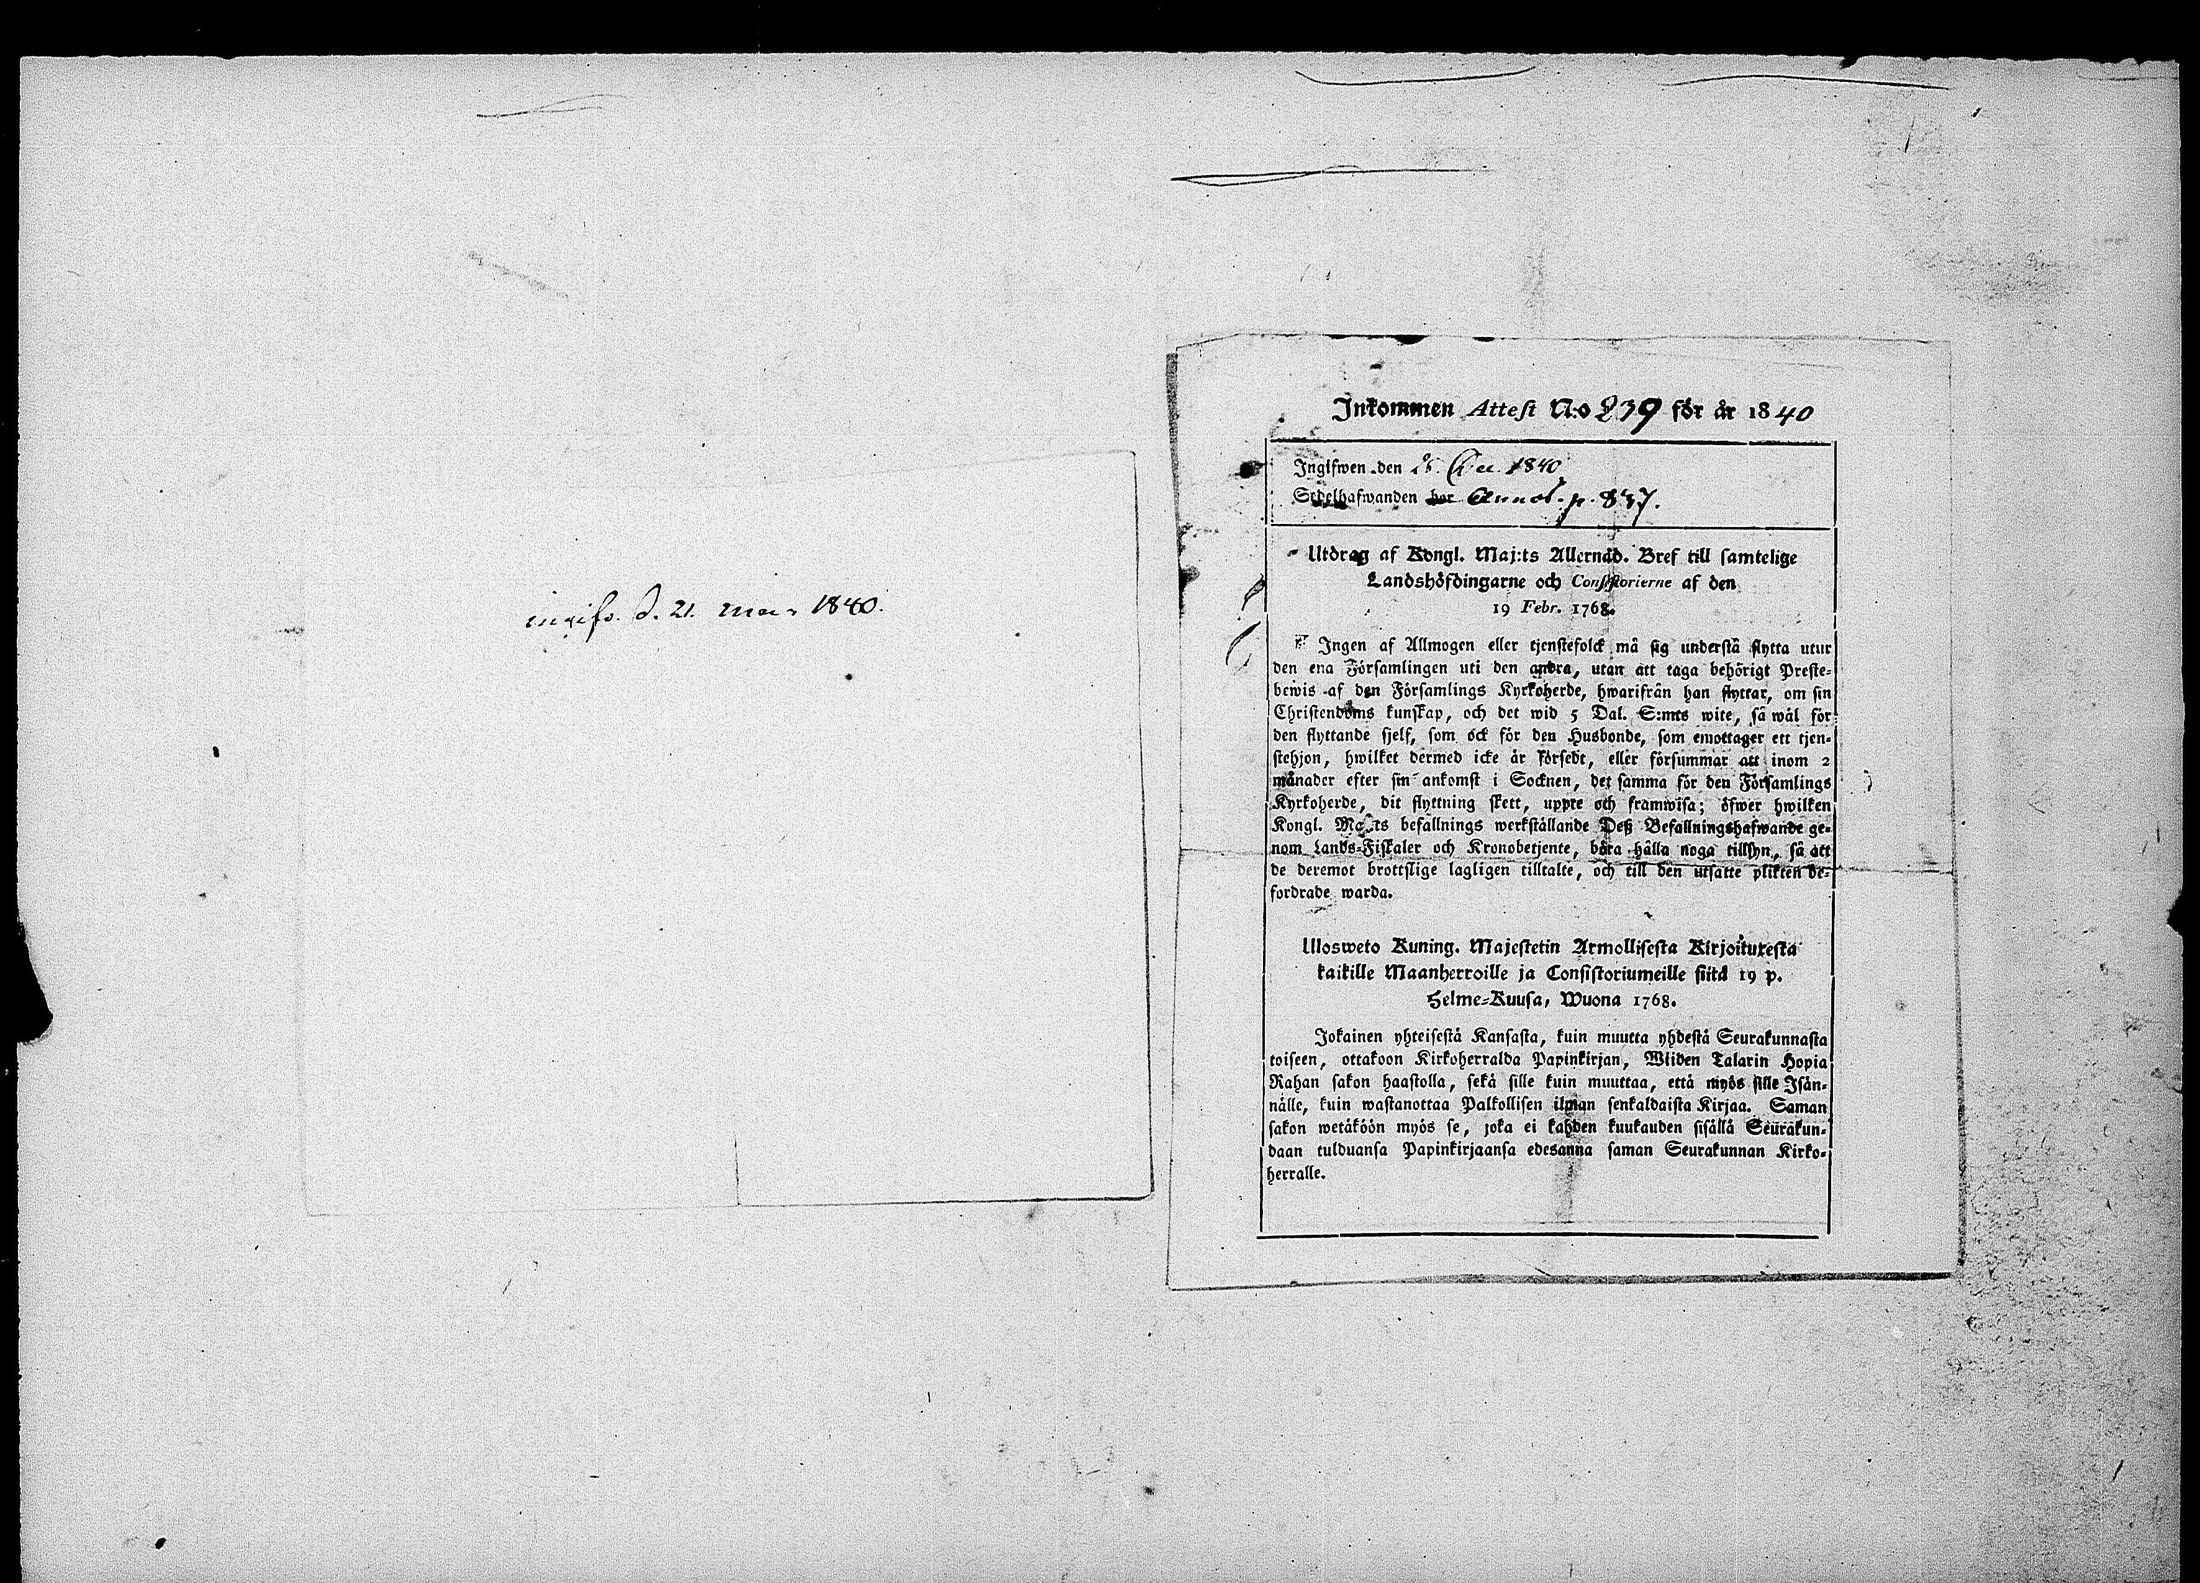 ingifv. d. 21. 1840.
Inkommen Attest N:o 239 för år 1840
Ingifwen den 1840
Sedelhafwanden bor Annot. p. 837.
Utdrag af Kongl. Maj:ts Allernåd. Bref till samtelige
Landshöfdingarne och Consistorierne af den
19 Febr. 1768.
Ingen af Allmogen eller tjenstefolck må sig understå flytta utur
den ena Församlingen uti den andra, utan att taga behörigt Preste-
bewis af den Församlings Kyrkoherde, hwarifrån han flyttar, om sin
Christendoms kunskap, och det wid 5 Dal. S:mts wite, så wäl för
den flyttande sjelf, som ock för den Husbonde, som emottager ett tjen-
stehjon, hwilket dermed icke är försedt, eller försummar att inom 2
månader efter sin ankomst i Socknen, det samma för den Församlings
Kyrkoherde, dit flyttning skett, uppte och framwisa; öfwer hwilken
Kongl. Maj:ts befallnings werkställande Deß Befallningshafwande ge-
nom Lands-Fiskaler och Kronobetjente, böra hålla noga tillsyn, så att
de deremot brottslige lagligen tilltalte, och till den utsatte plikten be-
fordrade warda.
Ulosweto Kuning. Majestetin Armollisesta Kirjoituxesta
kaikille Maanherroille ja Consistoriumeille siitä 19 p.
Helme-Kuusa, Wuona 1768.
Jokainen yhteisestä Kansasta, kuin muutta yhdestä Seurakunnasta
toiseen, ottakoon Kirkoherralda Papinkirjan, Wiiden Talarin Hopia
Rahan sakon haastolla, sekä sille kuin muuttaa, että myös sille Isän-
nälle, kuin wastanottaa Palkollisen ilman senkaldaista Kirjaa. Saman
sakon wetäköön myös se, joka ei kahden kuukauden sisällä Seurakun-
daan tulduansa Papinkirjaansa edesanna saman Seurakunnan Kirko-
herralle.